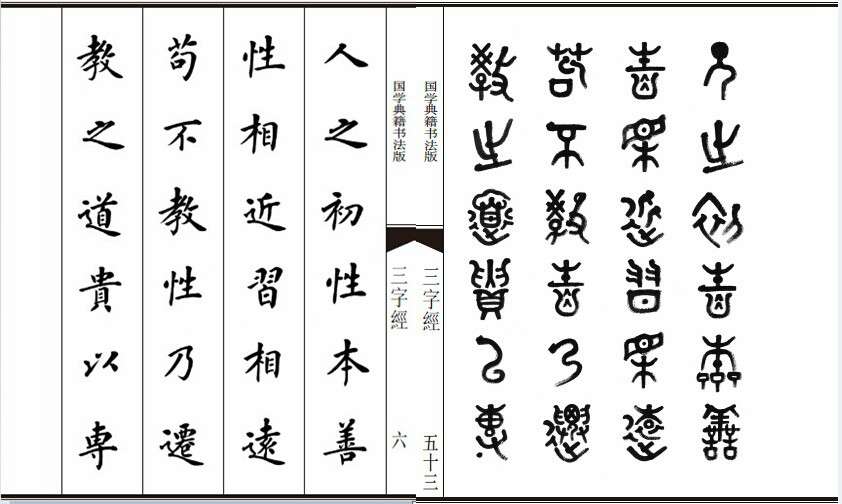 人之初性本善
性相近習相遠
苟不教性乃遷
教之道貴以專
国学典籍书法版
三字經
五十三
国学典籍书法版
三字經
六
人之初性本善
性相近習相遠
苟不教性乃遷
教之道貴以専